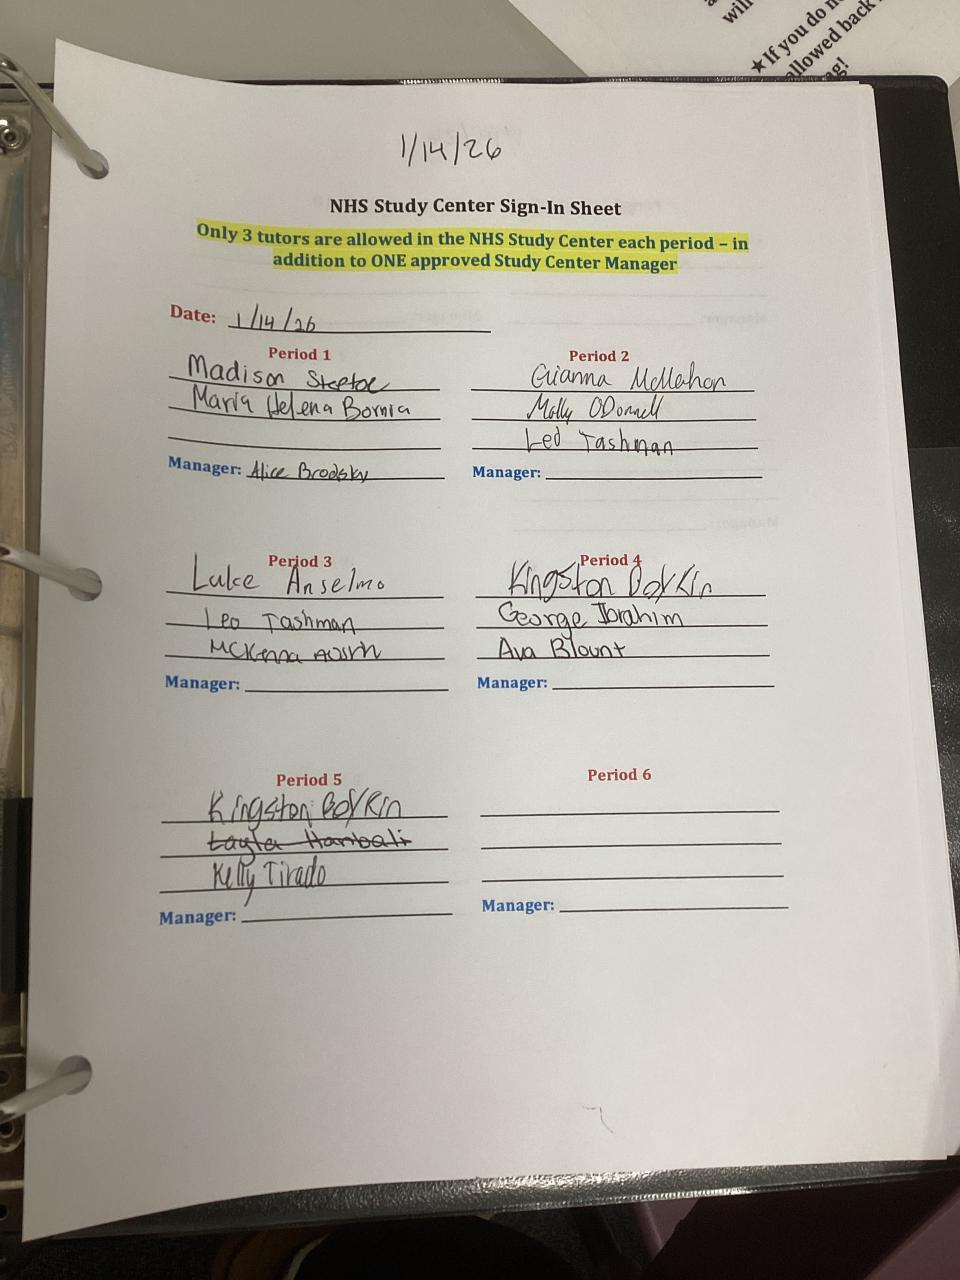 will
★If you do n
allowed back
ng!
1/14/26
NHS Study Center Sign-In Sheet
Only 3 tutors are allowed in the NHS Study Center each period – in
addition to ONE approved Study Center Manager
Date: 1/14/26
Period 1
Madison Steptoe
Maria Helena Bornia
Manager: Alice Brodsky
Period 2
Gianna McMahon
Molly ODonnell
Leo Tashman
Manager:
Period 3
Luke Anselmo
Leo Tashman
McKenna
Manager:
Period 4
Kingston Boykin
George Ibrahim
Ava Blount
Manager:
Period 5
Kingston Boykin
Layla Hanbali
Kelly Tirado
Manager:
Period 6
Manager: